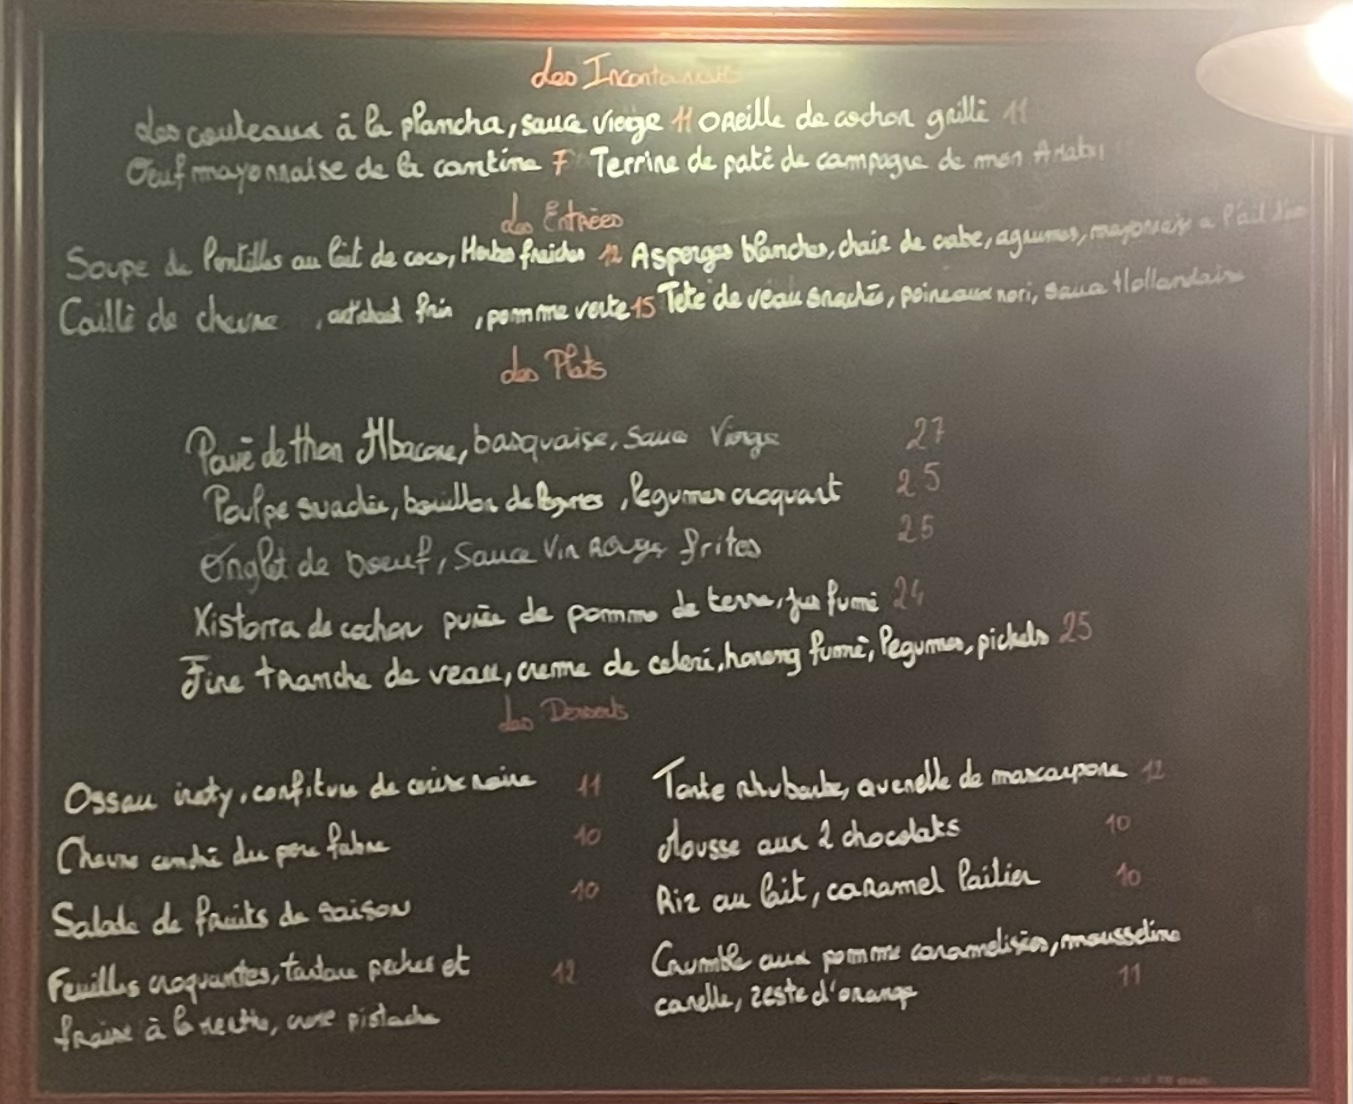 des Incontournables
des couteaux à la plancha, sauce vierge 11 Oreille de cochon grillé 11
Oeuf mayonnaise de la cantine 7 Terrine de paté de campagne de mon
des Entrées
Soupe de lentilles au lait de coco, Herbes fraiches 12 Asperges blanches, chair de crabe, agrumes, mayonnaise a l'ail
Caillé de chevre , artichaut , pomme verte 15 Tete de veau snackée, poireaux nori, sauce Hollandaise
des Plats
Pavé de thon Albacore, basquaise, Sauce Vierge 27
Poulpe snackée, bouillon de , legumes croquant 25
Onglet de boeuf, Sauce Vin Rouge frites 25
Xistorra de cochon purée de pomme de terre, jus fumé 24
Fine tranche de veau, creme de celeri, hareng fumé, legumes, pickels 25
des Desserts
Ossau iraty, confiture de cerise noire 11 Tarte rhubarbe, quenelle de mascarpone 12
Chevre cendré du pere fabre 10 Mousse aux 2 chocolats 10
Salade de fruits de saison 10 Riz au lait, caramel laitier 10
Feuilles croquantes, tartare peches et 12 Crumble aux pomme caramelisées, mousseline
fraise à la menthe, pistache canelle, zeste d'orange 11